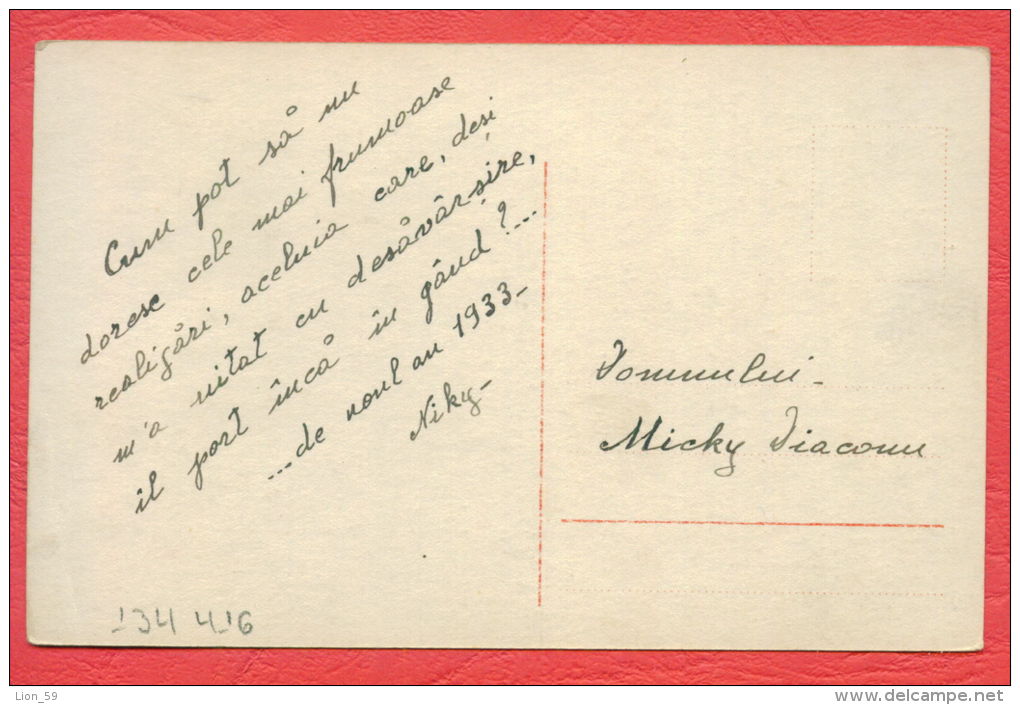 Cum pot să nu
doresc cele mai frumoase
realizări, aceluia care, deși
m'a uitat cu desăvârșire,
il port încă în gând?...
...de noul an 1933-
Niky-
Domnului-
Micky Diaconu
134 416
Lion_59
www.delcampe.net